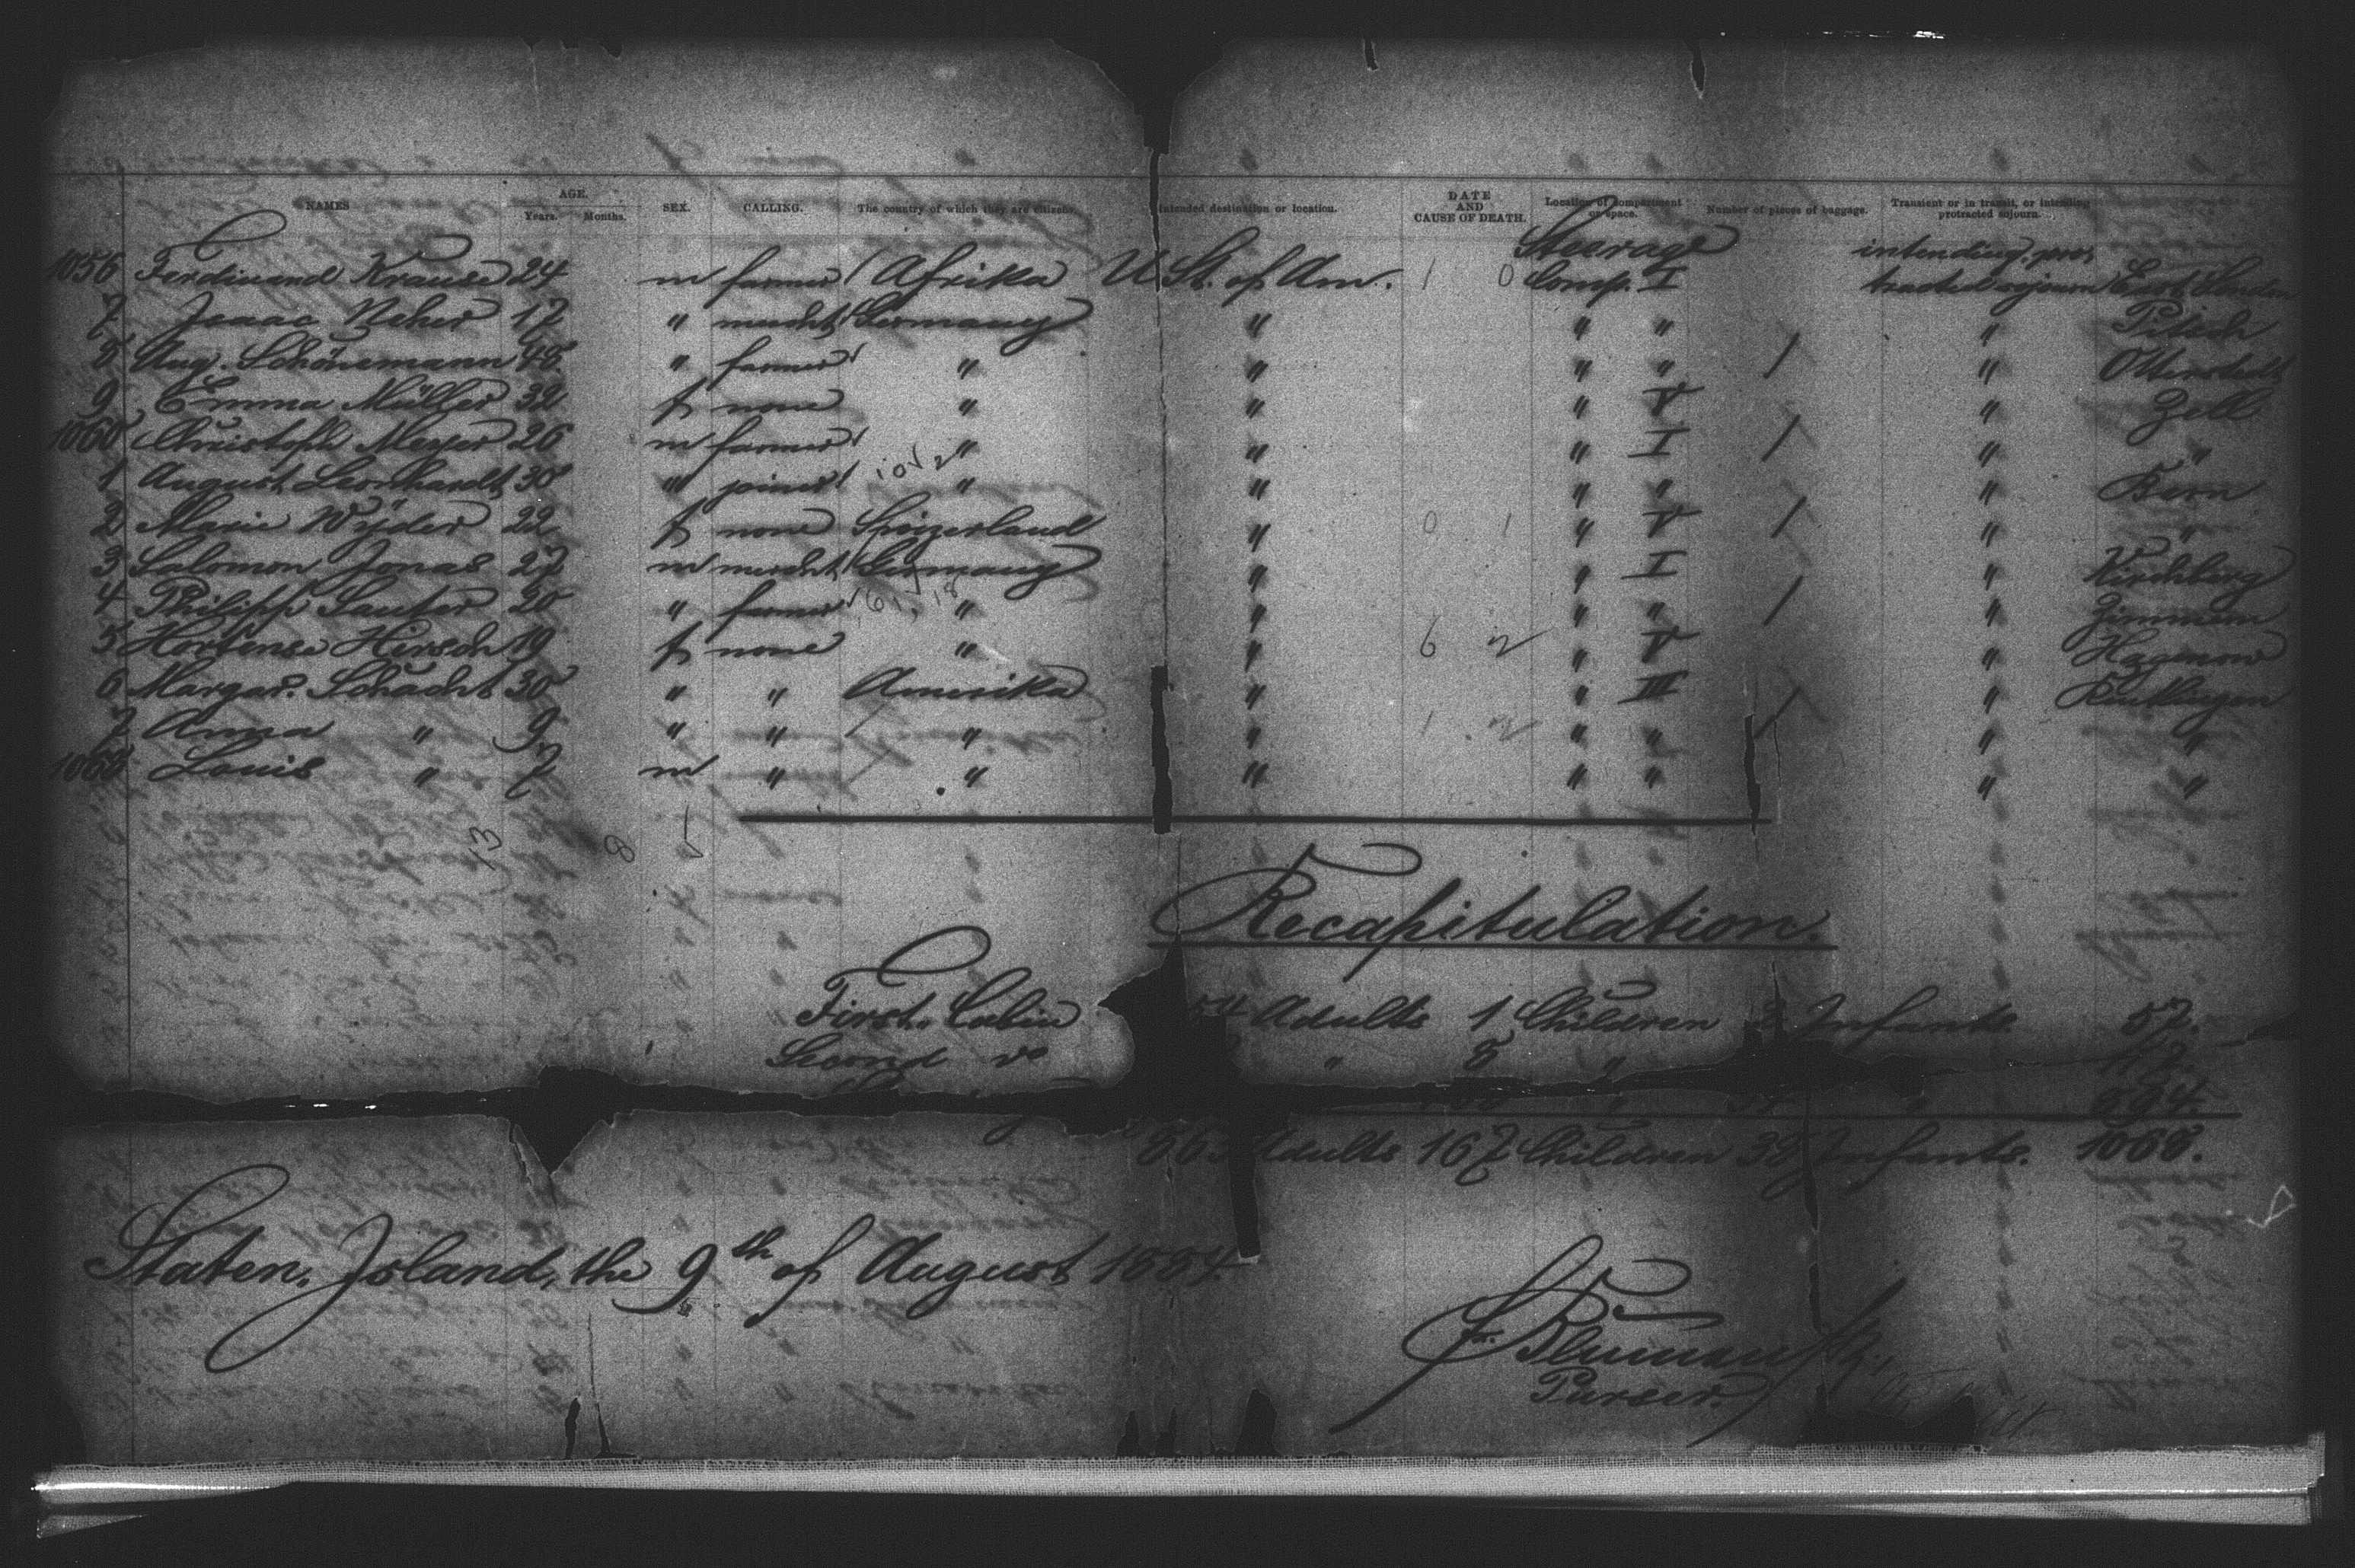 NAMES AGE. Years. Months. SEX. CALLING. The country of which they are citizens. Intended destination or location. DATE AND CAUSE OF DEATH. Location of compartment or space. Number of pieces of baggage. Transient or in transit, or intending protracted sojourn.
1056 Ferdinand Krause 24 m farmer Afrika U. St. of Am. 1 0 Steerage Comp. I intending pro, tracted sojourn East London
7 Isaac 17 " mercht Germany " " " "
8 Aug. Schönemann 48 " farmer " " " " / " Otterstedt
9 Emma Müller 32 f none " " " V " Zell
1060 Christoph Meyer 26 m farmer " " " I / " "
1 August Leonhardt 30 " joiner " " " " " Bern
2 Marie Wÿder 22 f none Swizerland " 0 1 " V / " "
3 Salomon Jonas 27 m mercht Germany " " I " Kirchberg
4 Philipp Sauter 20 " farmer " " " " / " Zimmern
5 Hortense Hirsch 19 f none " " 6 2 " V "
6 Margar. Schacht 30 " " Amerika " " III "
7 Anna " 9 " " " " 1 2 " " / " "
1068 Louis " 7 m " " " " " " "
13 8 5
Recapitulation.
First Cabin 54 Adults 1 Children 2 Infants 57.
Second do " 8 " 117.
" 894.
Adults 167 Children 38 Infants. 1068.
Staten, Island, the 9th of August 1884.
Purser.